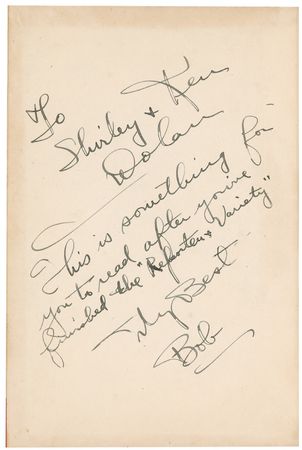 To
Shirley & Ken
Dolan
This is something for
you to read after you've
finished the "Reporter & Variety"
My Best
Bob